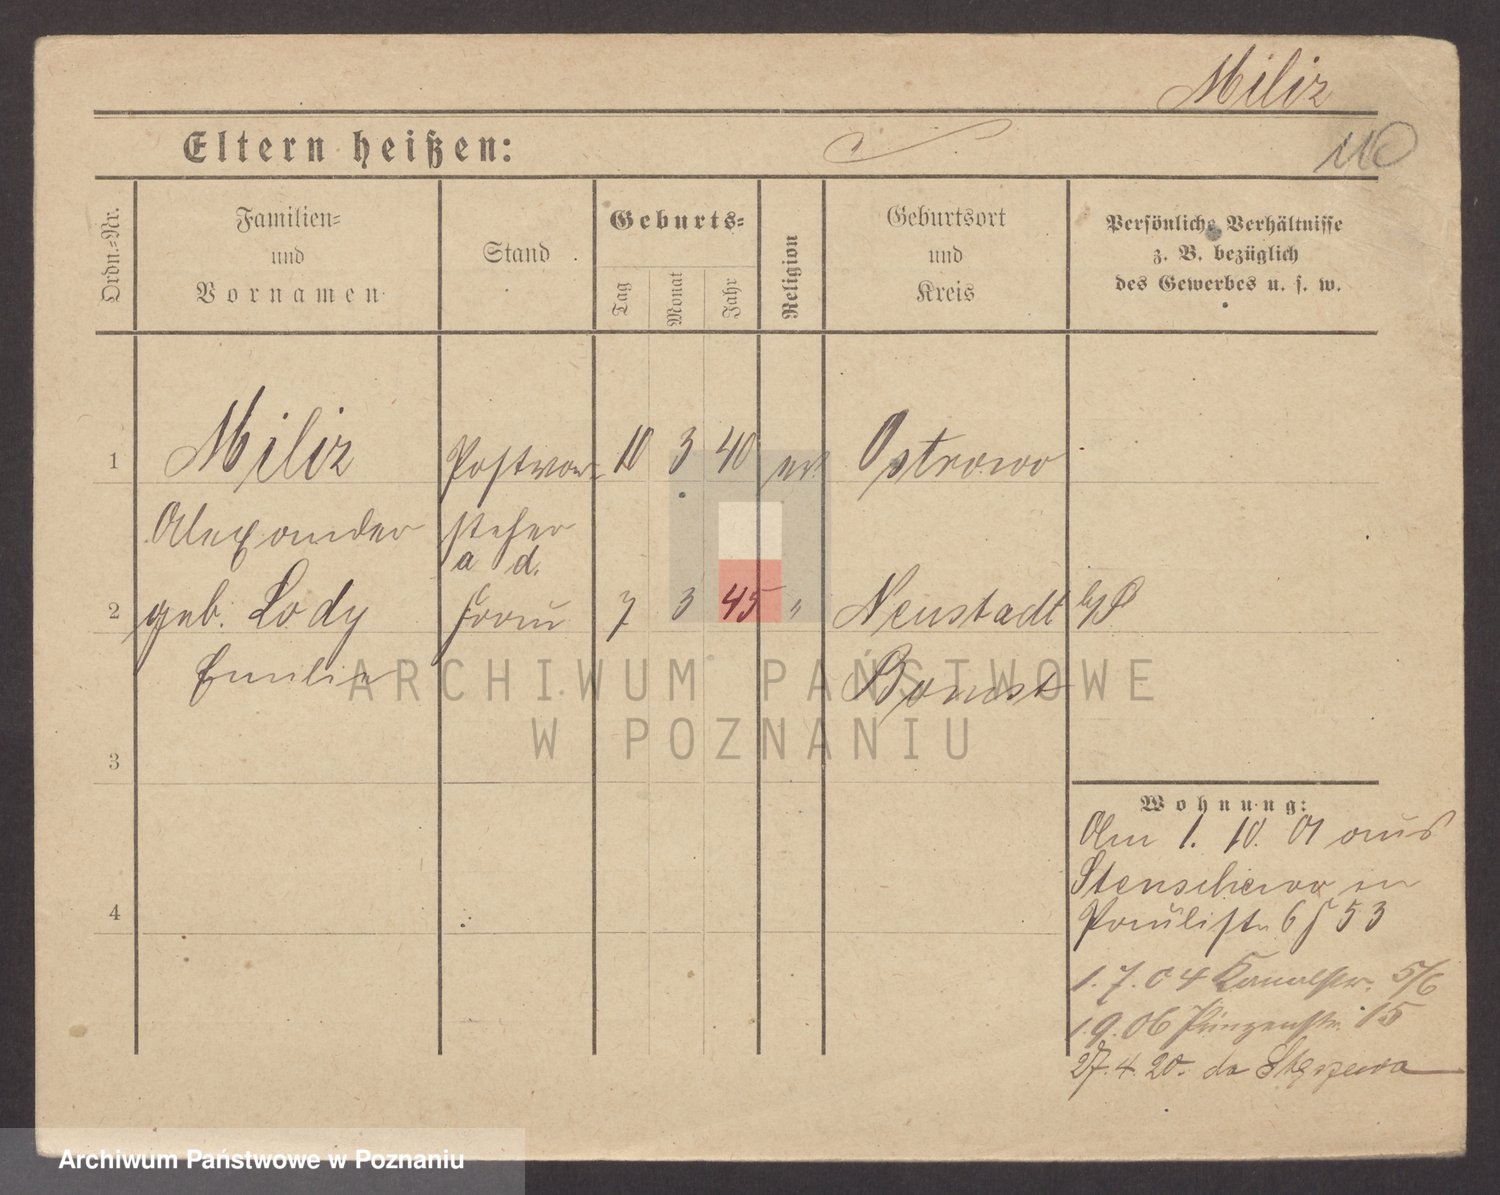 Miliz
Eltern heißen:
Ordn.=Nr.
Familien=
und
Vornamen
Stand
Geburts=
Tag
Monat
Jahr
Religion
Geburtsort
und
Kreis
Persönliche Verhältnisse
z. B. bezüglich
des Gewerbes u. s. w.
1 Miliz Postvor= 10 3 40 Ostrowo
Alexander steher
a d.
2 geb. Lody Frau 7 3 45 " Neustadt
Emilie Bomst
3
4
Wohnung:
Am 1. 10. 01 aus
Stenschewo
Paulistr. 53
1. 7. 04 Kanalstr. 5/6
1.9.06 Prinzenstr. 15
27.4.20. do Stęszewa
ARCHIWUM PAŃSTWOWE
W POZNANIU
Archiwum Państwowe w Poznaniu